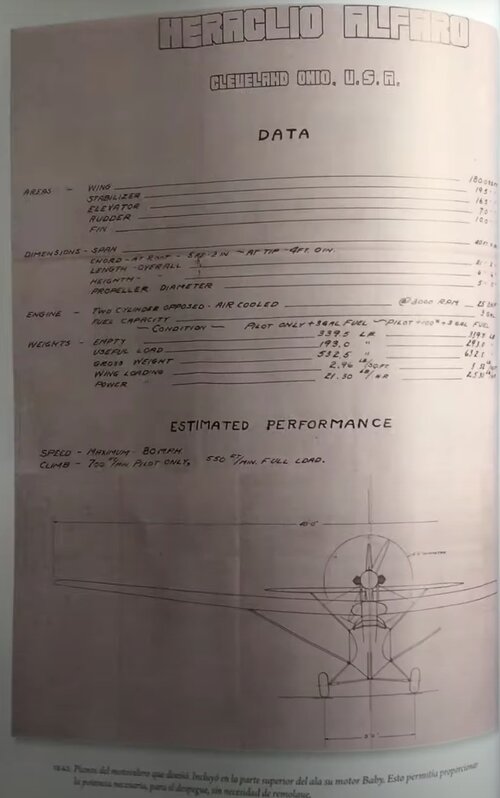 HERACLIO ALFARO
CLEVELAND OHIO, U.S.A.
DATA
AREAS - WING 180.0
STABILIZER 19.5
ELEVATOR 16.5
RUDDER 7.0
FIN 10.0
DIMENSIONS - SPAN
CHORD - AT ROOT - 5 FT. 3 IN - AT TIP - 4 FT. 0 IN.
LENGTH - OVERALL
HEIGHTH -
PROPELLER DIAMETER
ENGINE - TWO CYLINDER OPPOSED - AIR COOLED @ 3000 RPM
FUEL CAPACITY 3 GAL
- CONDITION - PILOT ONLY + 3 GAL FUEL - PILOT + 100# + 3 GAL FUEL
WEIGHTS - EMPTY 339.5 LB 339.5 LB
USEFUL LOAD 193.0 " 293.0 "
GROSS WEIGHT 532.5 " 632.5
WING LOADING 2.96 LB/SQ.FT.
POWER " 21.30 LB/HP
ESTIMATED PERFORMANCE
SPEED - MAXIMUM - 80 MPH
CLIMB - 700 FT/MIN. PILOT ONLY, 550 FT/MIN. FULL LOAD.
40'-0"
DIAMETER
Planos del motovelero que diseñó. Incluyó en la parte superior del ala su motor Baby. Esto permitía proporcionar
la potencia necesaria, para el despegue, sin necesidad de remolque.